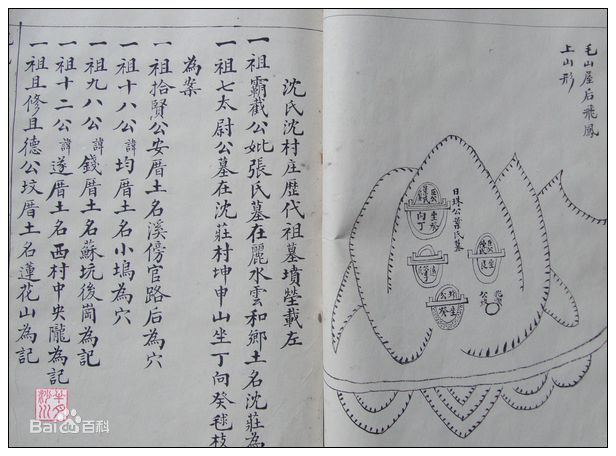 毛山屋后飛鳳
上山形
日珠公葉氏墓
沈氏沈村庄歷代祖墓墳塋載左
一祖霸截公妣張氏墓在麗水雲和鄉土名沈莊為
一祖七太尉公墓在沈莊村坤申山坐丁向癸毬枝
為案
一祖拾賢公安厝土名溪傍官路后為穴
一祖十八公諱均厝土名小塢為穴
一祖九八公諱錢厝土名蘇坑後崗為記
一祖十二公諱遂厝土名西村中央隴為記
一祖且修且德公坟厝土名蓮花山為記
Bai百科